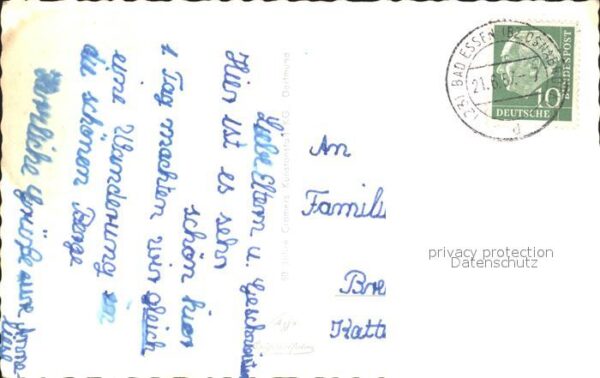 Liebe Eltern u. Geschwister
Hier ist es sehr
schön hier
1 Tag machten wir gleich
eine Wanderung in
die schönen Berge
Herzliche Grüße eure Anne-
liese
Cramers Kunstanstalt KG Dortmund
An
Famili
Bre
Katte
(23) BAD ESSEN (Bz OSNABRÜCK)
21.6.57.-7
d
10
DEUTSCHE BUNDESPOST
privacy protection
Datenschutz